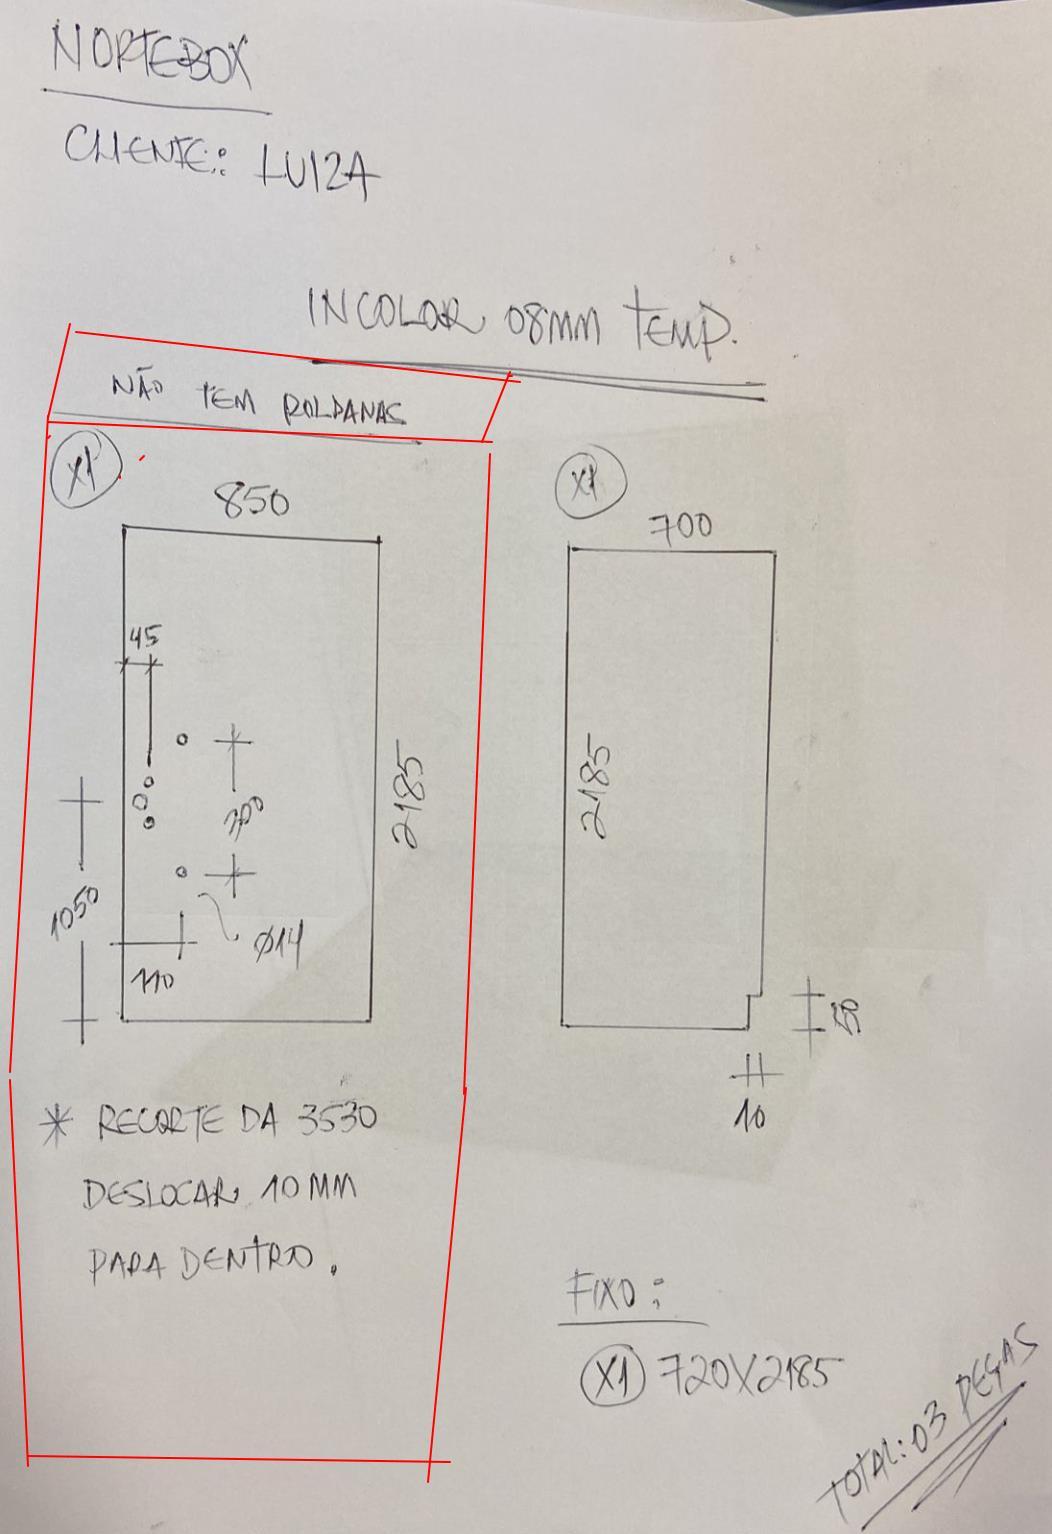 NORTEBOX
CLIENTE: LUIZA
INCOLOR 08MM TEMP.
NÃO TEM ROLDANAS
X1
850
45
300
2185
1050
Ø14
110
* RECORTE DA 3530
DESLOCAR 10MM
PARA DENTRO.
X1
700
2185
10
FIXO:
X1 720X2185
TOTAL: 03 PEÇAS